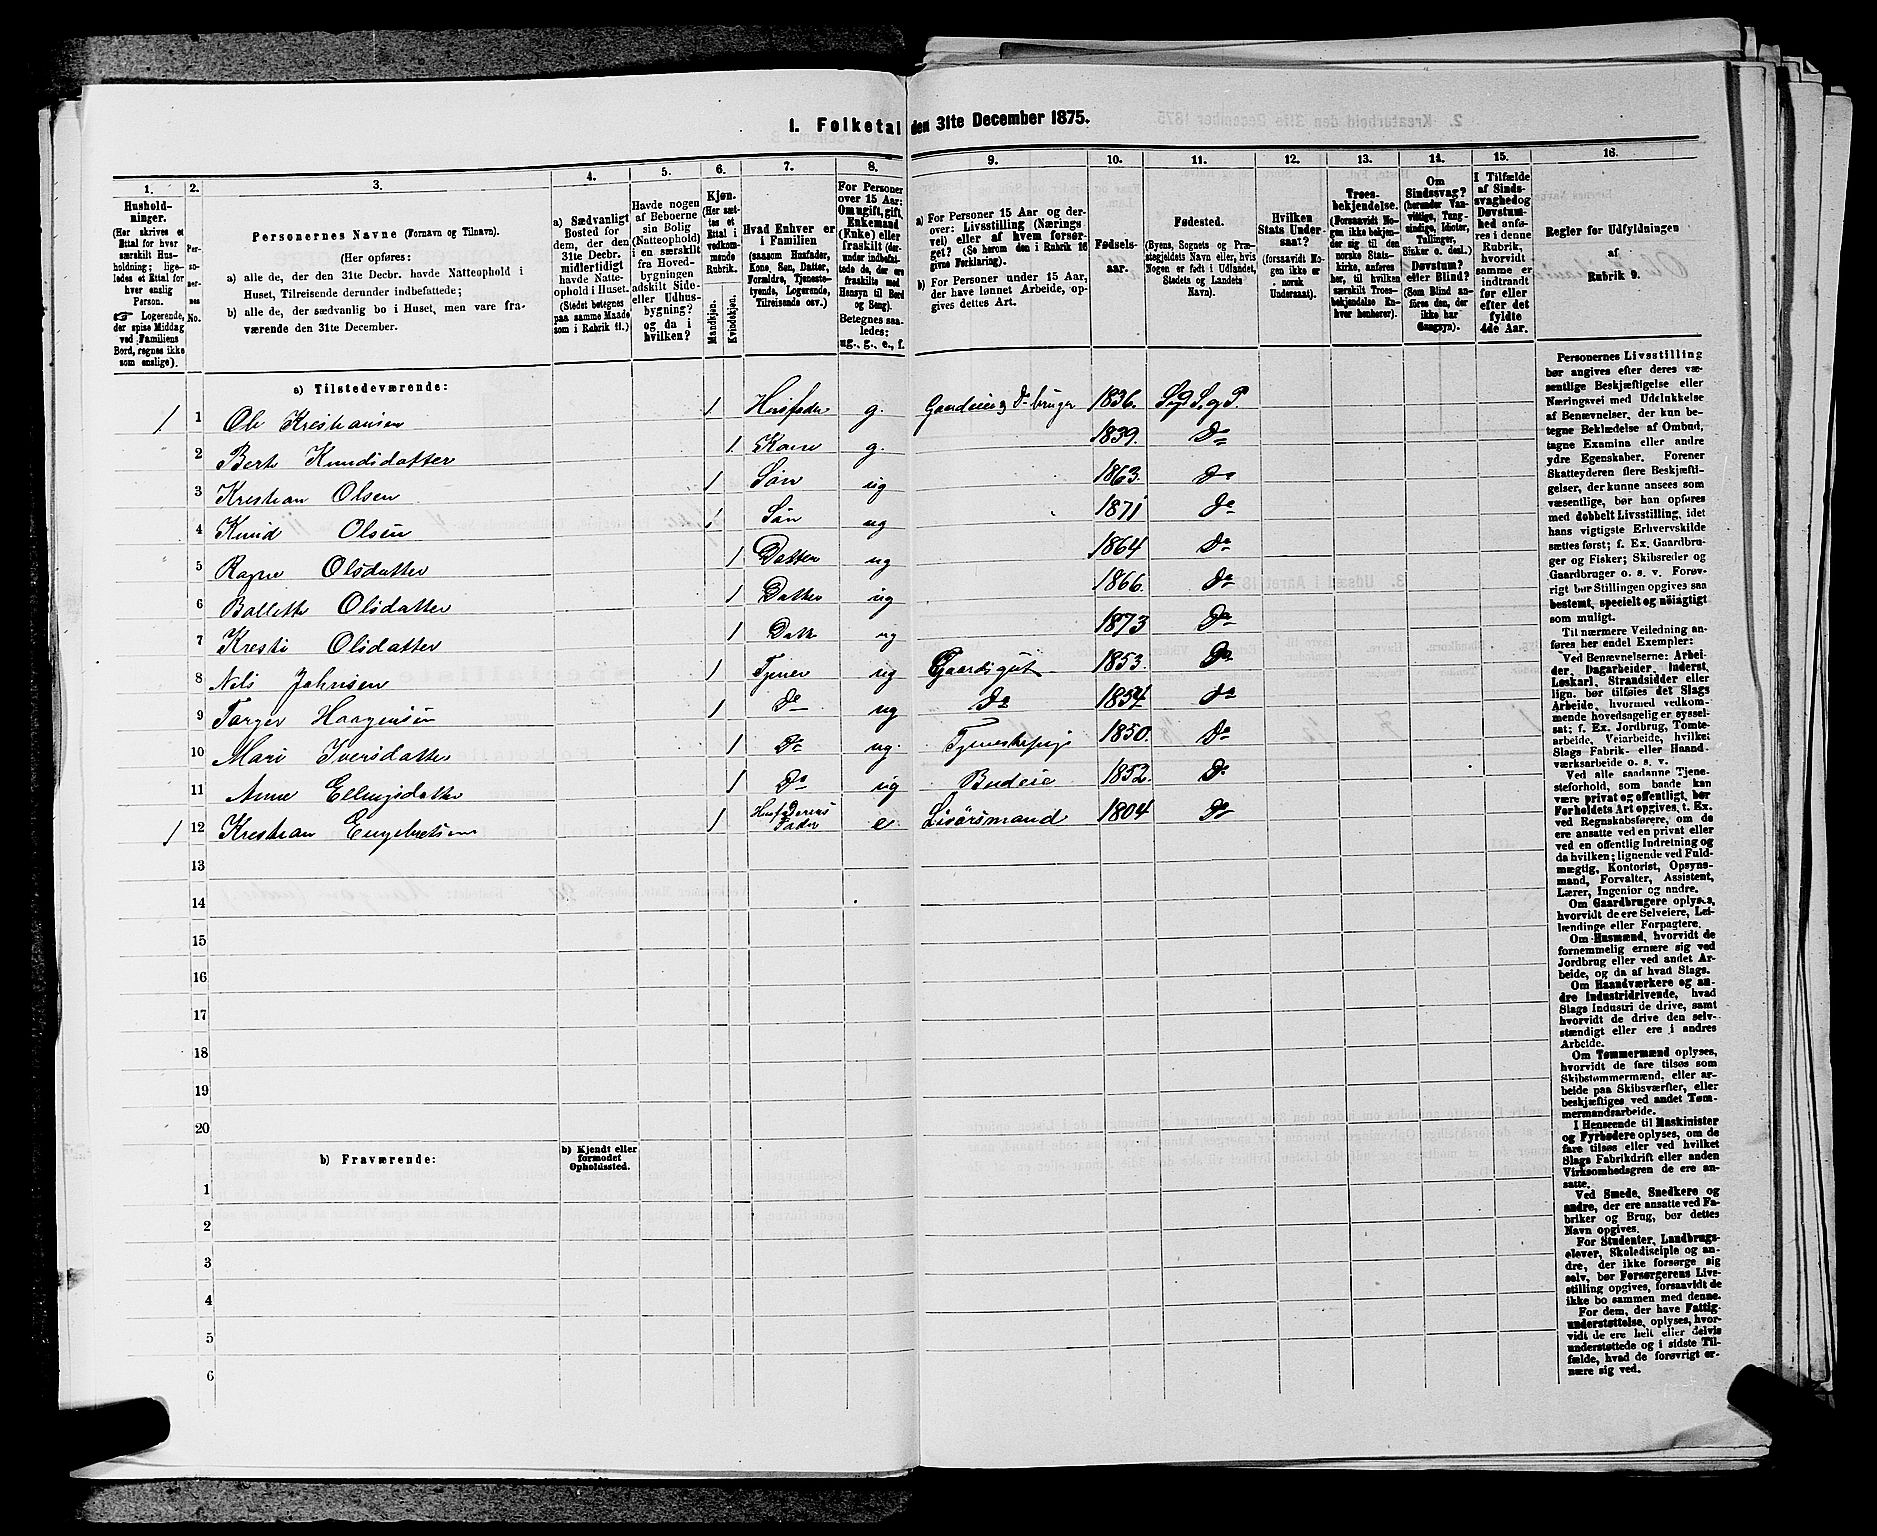 1. Folketal den 31te December 1875.
1. 2. 3. 4. 5. 6. 7. 8. 9. 10. 11. 12. 13. 14. 15. 16.
Husholdninger.
(Her skrives et Ettal for hver særskilt Husholdning; ligeledes et Ettal for hver enslig Person.
☞ Logerende, der spise Middag ved Familiens Bord, regnes ikke som enslige).
Personernes No.
Personernes Navne (Fornavn og Tilnavn).
(Her opføres:
a) alle de, der den 31te Decbr. havde Natteophold i Huset, Tilreisende derunder indbefattede;
b) alle de, der sædvanlig bo i Huset, men vare fraværende den 31te December.
a) Sædvanligt Bosted for dem, der den 31te Decbr. midlertidigt havde Natteophold i Huset. (Stedet betegnes paa samme Maade som i Rubrik 11.)
Havde nogen af Beboerne sin Bolig (Natteophold) i en særskilt fra Hovedbygningen adskilt Side- eller Udhusbygning? og da i hvilken?
Kjøn. (Her sættes et Ettal i vedkommende Rubrik.
Mandkjøn. Kvindekjøn.
Hvad Enhver er i Familien
(saasom Husfader, Kone, Søn, Datter, Forældre, Tjenestetyende, Logerende, Tilreisende osv.)
For Personer over 15 Aar: Om ugift, gift, Enkemand (Enke) eller fraskilt (derunder indbefattede de, der ere fraskilte med Hensyn til Bord og Seng).
Betegnes saaledes: ug., g., e., f.
a) For Personer 15 Aar og derover: Livsstilling (Næringsvei) eller af hvem forsørget? (Se herom den i Rubrik 16 givne Forklaring).
b) For Personer under 15 Aar, der have lønnet Arbeide, opgives dettes Art.
Fødselsaar.
Fødested.
(Byens, Sognets og Præstegjeldets Navn eller, hvis Nogen er født i Udlandet, Stedets og Landets Navn).
Hvilken Stats Undersaat?
(forsaavidt Nogen ikke er norsk Undersaat).
Troesbekjendelse.
(Forsaavidt Nogen ikke bekjender sig til den norske Statskirke, anføres her, til hvilken særskilt Troesbekjendelse Enhver henhører).
Om Sindssvag? (herunder Vanvittige, Tungsindige, Idioter, Tullinger, Sinker o. desl.) Døvstum? eller Blind? (Som Blind anføres den, der ikke har Gangsyn).
I Tilfælde af Sindssvaghed og Døvstumhed anføres i denne Rubrik, hvorvidt samme er indtraadt før eller efter det fyldte 4de Aar.
Regler for Udfyldningen af Rubrik 9.
a) Tilstedeværende:
1 1 Ole Kresthansen 1 Husfader g. Gaardeier og Do bruger 1836. Sogd S. og P.
2 Berte Knudsdatter 1 Kone g. 1839. Do
3 Kresthan Olsen 1 Søn ug 1863. Do
4 Knud Olsen 1 Søn ug 1871 Do
5 Ragne Olsdatter 1 Datter ug 1864 Do
6 Bollette Olsdatter 1 Datter ug 1866. Do
7 Kresti Olsdatter 1 Datt ug 1873 Do
8 Nils Johnsen 1 Tjener ug Gaardsgut 1853. Do
9 Torger Haagensen 1 Do ug Do 1854. Do
10 Mari Iversdatter 1 Do ug. Tjenestepige 1850. Do
11 Anne Ellingsdatter 1 Do ug Budeie 1852. Do
1 12 Kresthan Engebretsen 1 Husfaderens Fader e Livørsmand 1804 Do
13
14
15
16
17
18
19
20
b) Fraværende:
b) Kjendt eller formodet Opholdssted.
1
2
3
4
5
6
Personernes Livsstilling bør angives efter deres væsentlige Beskjæftigelse eller Næringsvei med Udelukkelse af Benævnelser, der kun betegne Beklædelse af Ombud, tagne Examina eller andre ydre Egenskaber. Forener Skatteyderen flere Beskjæftigelser, der kunne ansees som væsentlige, bør han opføres med dobbelt Livsstilling, idet hans vigtigste Erhvervskilde sættes først; f. Ex. Gaardbruger og Fisker; Skibsreder og Gaardbruger o. s. v. Forøvrigt bør Stillingen opgives saa bestemt, specielt og nøiagtigt som muligt.
Til nærmere Veiledning anføres her endel Exempler:
Ved Benævnelserne: Arbeider, Dagarbeider, Inderst, Løskarl, Strandsidder eller lign. bør tilføies det Slags Arbeide, hvormed vedkommende hovedsagelig er sysselsat; f. Ex. Jordbrug, Tomtearbeide, Veiarbeide, hvilket Slags Fabrik- eller Haandværksarbeide o. s. v.
Ved alle saadanne Tjenesteforhold, som baade kan være privat og offentligt, bør Forholdets Art opgives, t. Ex. ved Regnskabsførere, om de ere ansatte ved en privat eller ved en offentlig Indretning og da hvilken; lignende ved Fuldmægtig, Kontorist, Opsynsmand, Forvalter, Assistent, Lærer, Ingeniør og andre.
Om Gaardbrugere oplyses, hvorvidt de ere Selveiere, Leilændinge eller Forpagtere.
Om Husmænd, hvorvidt de fornemmelig ernære sig ved Jordbrug eller ved andet Arbeide, og da af hvad Slags.
Om Haandværkere og andre Industridrivende, hvad Slags Industri de drive, samt hvorvidt de drive den selvstændigt eller ere i andres Arbeide.
Om Tømmermænd oplyses, hvorvidt de fare tilsøs som Skibstømmermænd, eller arbeide paa Skibsværfter, eller beskjæftiges ved andet Tømmermandsarbeide.
I Henseende til Maskinister og Fyrbødere oplyses, om de fare tilsøs eller ved hvilket Slags Fabrikdrift eller anden Virksomhedsgren de ere ansatte.
Ved Smede, Snedkere og andre, der ere ansatte ved Fabriker og Brug, bør dettes Navn opgives.
For Studenter, Landbrugselever, Skoledisciple og andre, der ikke forsørge sig selv, bør Forsørgerens Livsstilling opgives, forsaavidt de ikke bo sammen med denne.
For dem, der have Fattigunderstøttelse, oplyses, hvorvidt de ere helt eller delvis understøttede og i sidste Tilfælde, hvad de forøvrigt ernære sig ved.